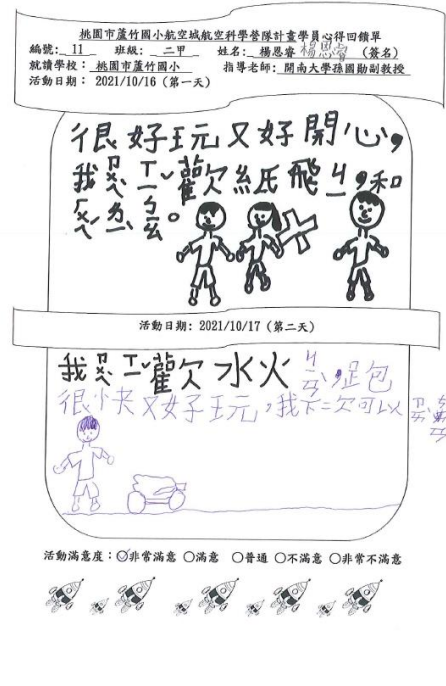 桃園市蘆竹國小航空城航空科學營隊計畫學員心得回饋單
編號: 11 班級: 二甲 姓名: 楊思睿 楊思睿 (簽名)
就讀學校: 桃園市蘆竹國小 指導老師: 開南大學孫國勛副教授
活動日期: 2021/10/16 (第一天)
很好玩又好開心,
我ㄗㄨㄟˋㄒㄧˇ歡紙飛ㄐㄧ,和
活動日期: 2021/10/17 (第二天)
我ㄗㄨㄟˋㄒㄧˇ歡水火ㄐㄧㄢˋ,跑
很快又好玩,我下次可以
活動滿意度: 非常滿意 滿意 普通 不滿意 非常不滿意